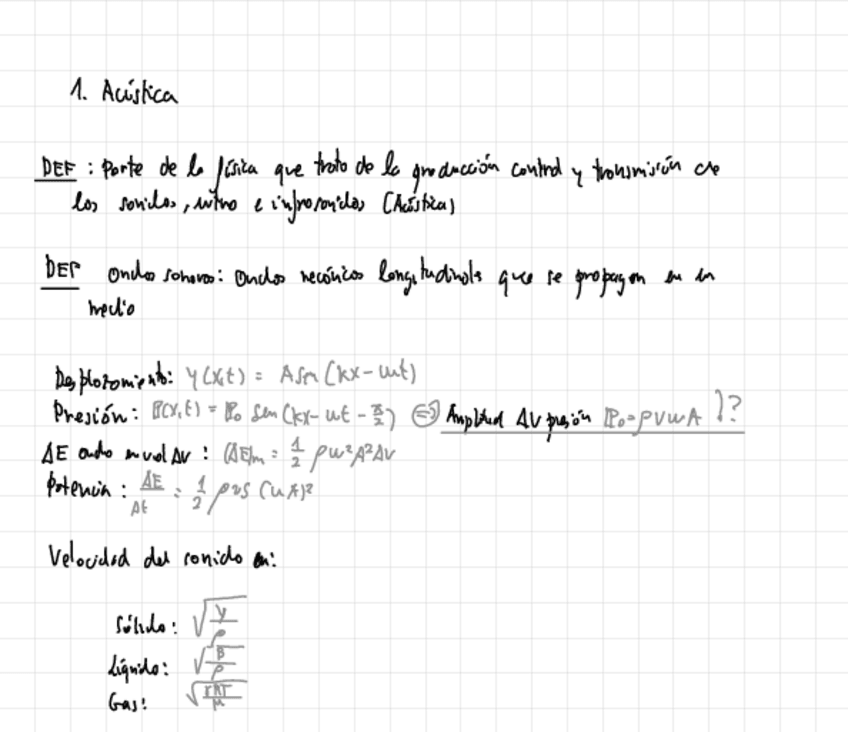 1. Acústica
DEF : Parte de la física que trata de la producción control y transmisión de
los sonidos, ultra e infrasonidos (Acústica)
DEF Ondas sonoras: Ondas mecánicas longitudinals que se propagan en un
medio
Desplazamiento: y(x,t) = A sen (kx - ωt)
Presión: P(x,t) = P₀ sen (kx - ωt - π/2) ⇒ Amplitud ΔV presión P₀ = ρvωA )?
ΔE onda en vol ΔV : (ΔE)m = 1/2 ρω²A²ΔV
Potencia : ΔE/Δt = 1/2 ρvS (ωA)²
Velocidad del sonido en:
Sólido: √(Y/ρ)
Líquido: √(B/ρ)
Gas: √(γRT/M)